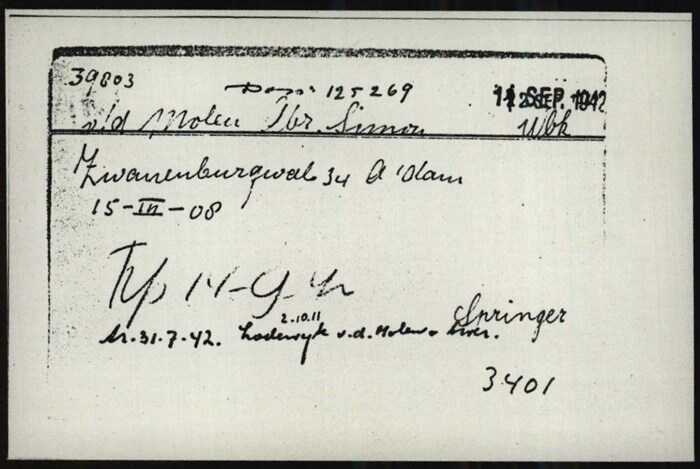 39803
Doss: 125269
SEP. 1942
v/d Molen Isr. Simon Wbk
Zwanenburgwal 34 A'dam
15-III-08
Trp 14-9-42
Springer
2.10.11
tr. 31.7.42. Lodewyk v.d. Molen
3401